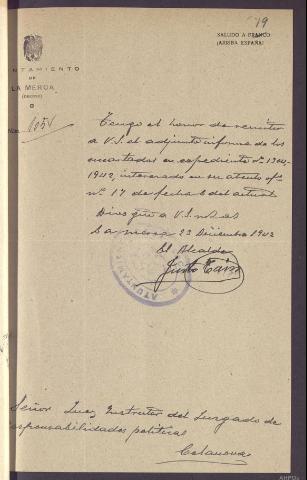 19
SALUDO A FRANCO
¡ARRIBA ESPAÑA!
NTAMIENTO
DE
LA MERCA
(ORENSE)
Núm. 1051
Tengo el honor de remitir
a V.S. el adjunto informe de los
encartados en expediente nº 1304-
1942, interesado en su atento ofº
nº 17 de fecha 6 del actual
Dios gue a V.S. m. as
La Merca 23 Diciembre 1942
El Alcalde
Justo
Señor Juez Instructor del Juzgado de
esponsabilidades políticas
Celanova